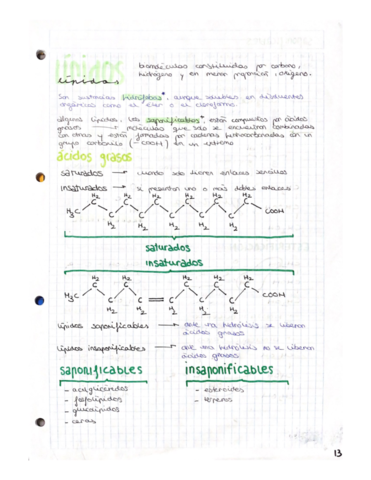 lípidos
lípidos
biomoléculas constituidas por carbono,
hidrógeno y en menor proporción, oxígeno.
Son sustancias hidrófobas*, aunque solubles en disolventes
orgánicos como el éter o el cloroformo.
Algunos lípidos, los saponificables*, están compuestos por ácidos
grasos → moléculas que solo se encuentran combinadas
con otras y están formadas por cadenas hidrocarbonadas con un
grupo carboxilo (-COOH) en un extremo
ácidos grasos
saturados → cuando solo tienen enlaces sencillos
insaturados → si presentan uno o más dobles enlaces
H2 H2 H2 H2 H2
C C C C C
H3C C C C C C COOH
H2 H2 H2 H2 H2
saturados
insaturados
H2 H2 H2 H2
C C C C
H3C C C = C C C COOH
H2 H H H2 H2
lípidos saponificables → ante una hidrólisis se liberan
ácidos grasos
lípidos insaponificables → ante una hidrólisis no se liberan
ácidos grasos
saponificables
- acilglicéridos
- fosfolípidos
- glucolípidos
- ceras
insaponificables
- esteroides
- terpenos
13